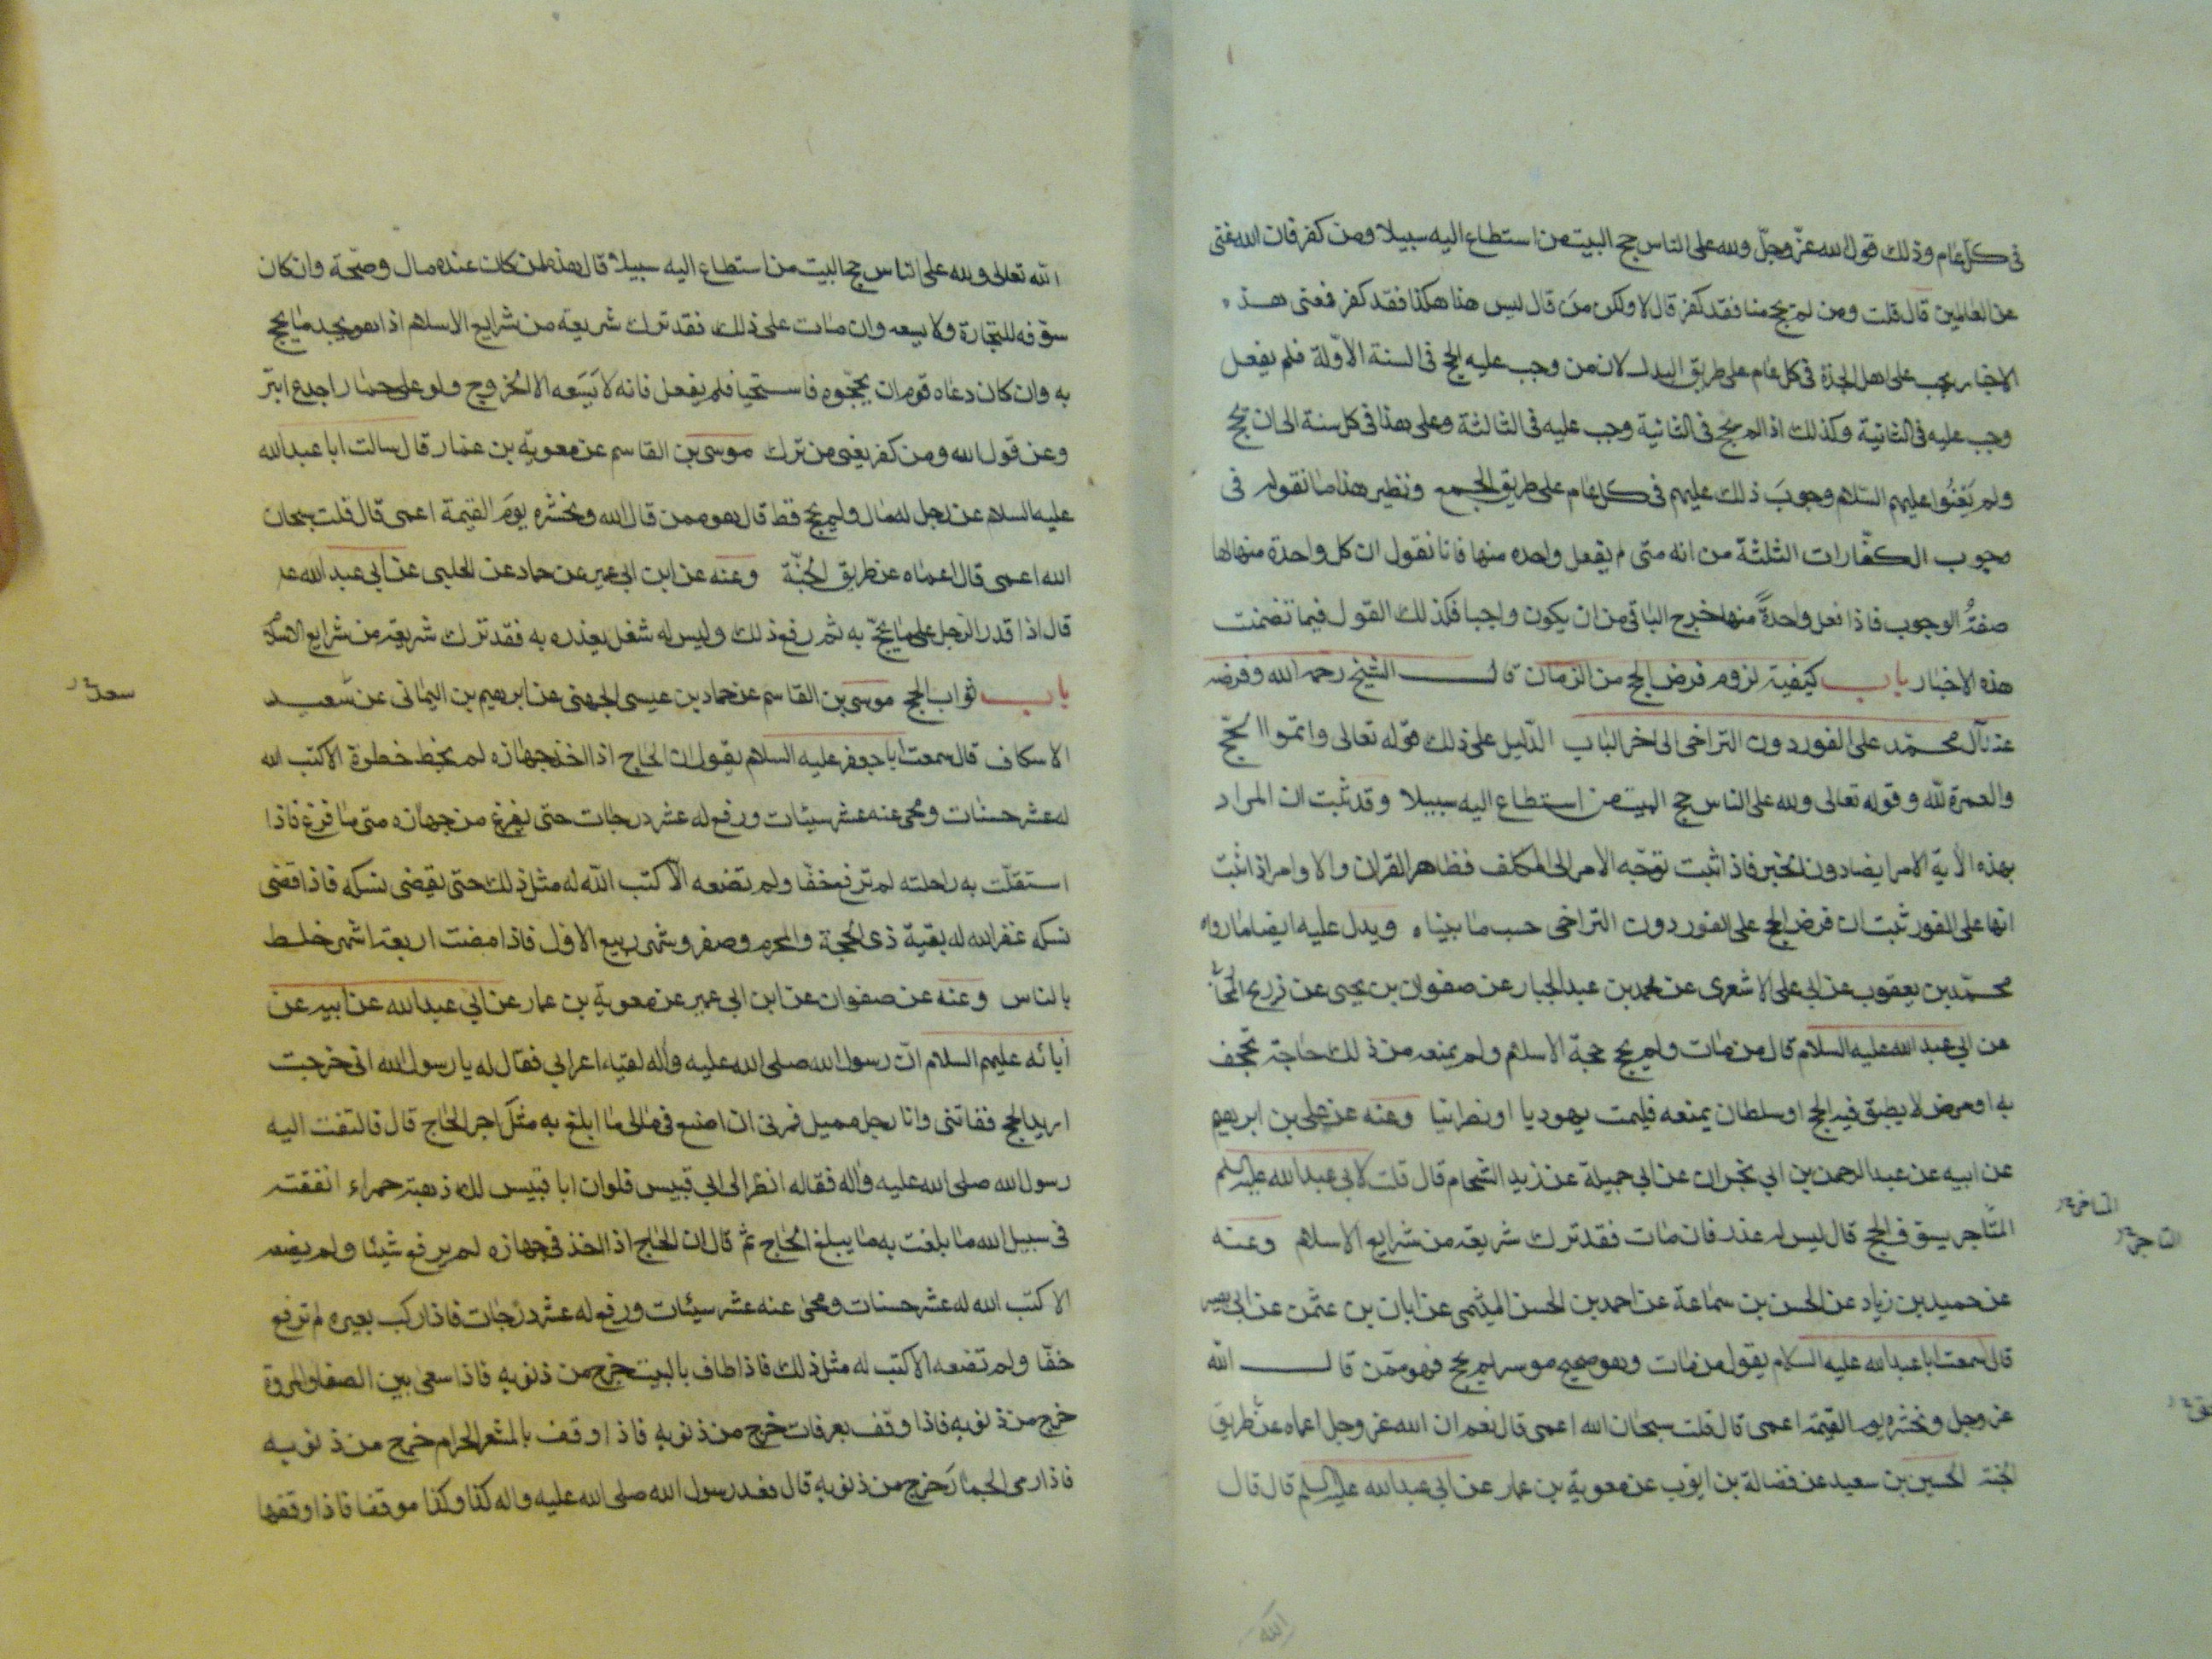 فى كل عام وذلك قول الله عزّ وجلّ ولله على الناس حج البيت من استطاع اليه سبيلا ومن كفر فان الله غنى
عن العالمين قال قلت ومن لم يحج منا فقد كفر قال لا ولكن من قال ليس هذا هكذا فقد كفر فمعنى هذه
الاخبار يجب على اهل الجدة فى كل عام على طريق البدل لان من وجب عليه الحج فى السنة الاوّلة فلم يفعل
وجب عليه فى الثانية وكذلك اذا لم يحج فى الثانية وجب عليه فى الثالثة وعلى هذا فى كل سنة الى ان يحج
ولم يَعْنُوا عليهم السّلام وجوبَ ذلك عليهم فى كل عام على طريق الجمع ونظير هذا ما نقوله فى
وجوب الكفّارات الثلثة من انه متى لم يفعل واحده منها فانا نقول ان كل واحدة منها لها
صفةُ الوجوب فاذا فعل واحدةً منها خرج الباقى من ان يكون واجبا فكذلك القول فيما تضمنت
هذه الاخبار باب كيفية لزوم فرض الحج من الزمان قال الشيخ رحمه الله وفرضه
عند آل محمّد على الفور دون التراخى الى اخر الباب الدّليل على ذلك قوله تعالى واتمّوا الحجّ
والعمرة للّه وقوله تعالى ولله على الناس حج البيت من استطاع اليه سبيلا وقد ثبت ان المراد
بهذه الآية الامر ايضا دون الخبر فاذا ثبت توجّه الامر الى المكلف فظاهر القران والاوامر اذا ثبت
انها على الفور ثبت ان فرض الحج على الفور دون التراخى حسب ما بيناه ويدل عليه ايضا ما رواه
محمّد بن يعقوب عن ابى على الاشعرى عن محمد بن عبد الجبار عن صفوان بن يحيى عن ذريح المحا
عن ابى عبد الله عليه السلام قال من مات ولم يحج حجة الاسلام ولم يمنعه من ذلك حاجة تجحف
به او مرض لا يطيق فيه الحج او سلطان يمنعه فليمت يهوديا او نصرانيا وعنه عن على بن ابرهيم
عن ابيه عن عبد الرحمن بن ابي نجران عن ابى جميلة عن زيد الشحام قال قلت لابى عبد الله عليه السلم
التّاجر يسوّف الحج قال ليس له عذر فان مات فقد ترك شريعة من شرايع الاسلام وعنه
عن حميد بن زياد عن الحسن بن سماعة عن احمد بن الحسن الميثمى عن ابان بن عثمن عن ابى بصير
قال سمعت ابا عبد الله عليه السلام يقول من مات وهو صحيح موسر لم يحج فهو ممّن قال الله
عز وجل ونحشره يوم القيمة اعمى قال قلت سبحان الله اعمى قال نعم ان الله عز وجل اعماه عن طريق
الجنة الحسين بن سعيد عن فضالة بن ايوب عن معوية بن عمار عن ابى عبد الله عليه السلم قال قال
الله
التاجر
الله تعالى ولله على الناس حج البيت من استطاع اليه سبيلا قال هذه لمن كان عنده مال وصحّة وان كان
سوّفه للتجارة ولا يسعه وان مات على ذلك فقد ترك شريعة من شرايع الاسلام اذا هو يجد ما يحج
به وان كان دعاه قوم ان يحجّوه فاستحيا فلم يفعل فانه لا يَسَعه الا الخروج ولو على حمار اجدع ابتر
وعن قول الله ومن كفر يعنى من ترك موسى بن القاسم عن معوية بن عمار قال سالت ابا عبد الله
عليه السلام عن رجل له مال ولم يحج قط قال هو ممن قال الله ونحشره يومَ القيمة اعمى قال قلت سبحان
الله اعمى قال اعماه عن طريق الجنّة وعنه عن ابن ابى عمير عن حماد عن الحلبى عن ابى عبد الله عد
قال اذا قدر الرجل على ما يحجّ به ثم رفع ذلك وليس له شغل يعذره به فقد ترك شريعة من شرايع الاسلام
باب ثواب الحج موسى بن القاسم عن حماد بن عيسى الجهنى عن ابرهيم بن اليمانى عن سَعيد
سعد
الاسكاف قال سمعت ابا جعفر عليه السلام يقول ان الحاج اذا اخذ جهازه لم يخط خطوة الا كتب الله
له عشر حسنات ومحى عنه عشر سيئات ورفع له عشر درجات حتى يفرغ من جهازه متى ما فرغ فاذا
استقلّت به راحلته لم ترفع خفّا ولم تضعه الا كتب الله له مثل ذلك حتى يقضى نسكه فاذا قضى
نسكه غفر الله له بقية ذى الحجة والمحرم وصفر وشهر ربيع الاول فاذا مضت اربعة اشهر خلط
بالناس وعنه عن صفوان عن ابن ابى عمير عن معوية بن عمار عن ابي عبد الله عن ابيه عن
آبائه عليهم السلام انّ رسول الله صلى الله عليه وآله لقيه اعرابي فقال له يا رسول الله انى خرجت
اريد الحج ففاتنى وانا رجل مميل فمرنى ان اصنع فى مالى ما ابلغ به مثل اجر الحاج قال فالتفت اليه
رسول الله صلى الله عليه وآله فقال له انظر الى ابي قبيس فلو ان ابا قبيس لك ذهبة حمراء انفقته
فى سبيل الله ما بلغت به ما يبلغ الحاج ثم قال ان الحاج اذا اخذ فى جهازه لم يرفع شيئا ولم يضعه
الا كتب الله له عشر حسنات ومحى عنه عشر سيئات ورفع له عشر درجات فاذا ركب بعيره لم ترفع
خفّا ولم تضعه الا كتب له مثل ذلك فاذا طاف بالبيت خرج من ذنوبه فاذا سعى بين الصفا والمروة
خرج من ذنوبه فاذا وقف بعرفات خرج من ذنوبه فاذا وقف بالمشعر الحرام خرج من ذنوبه
فاذا رمى الجمارَ خرج من ذنوبه قال فعد رسول الله صلى الله عليه واله كذا وكذا موقفا فاذا وقفها